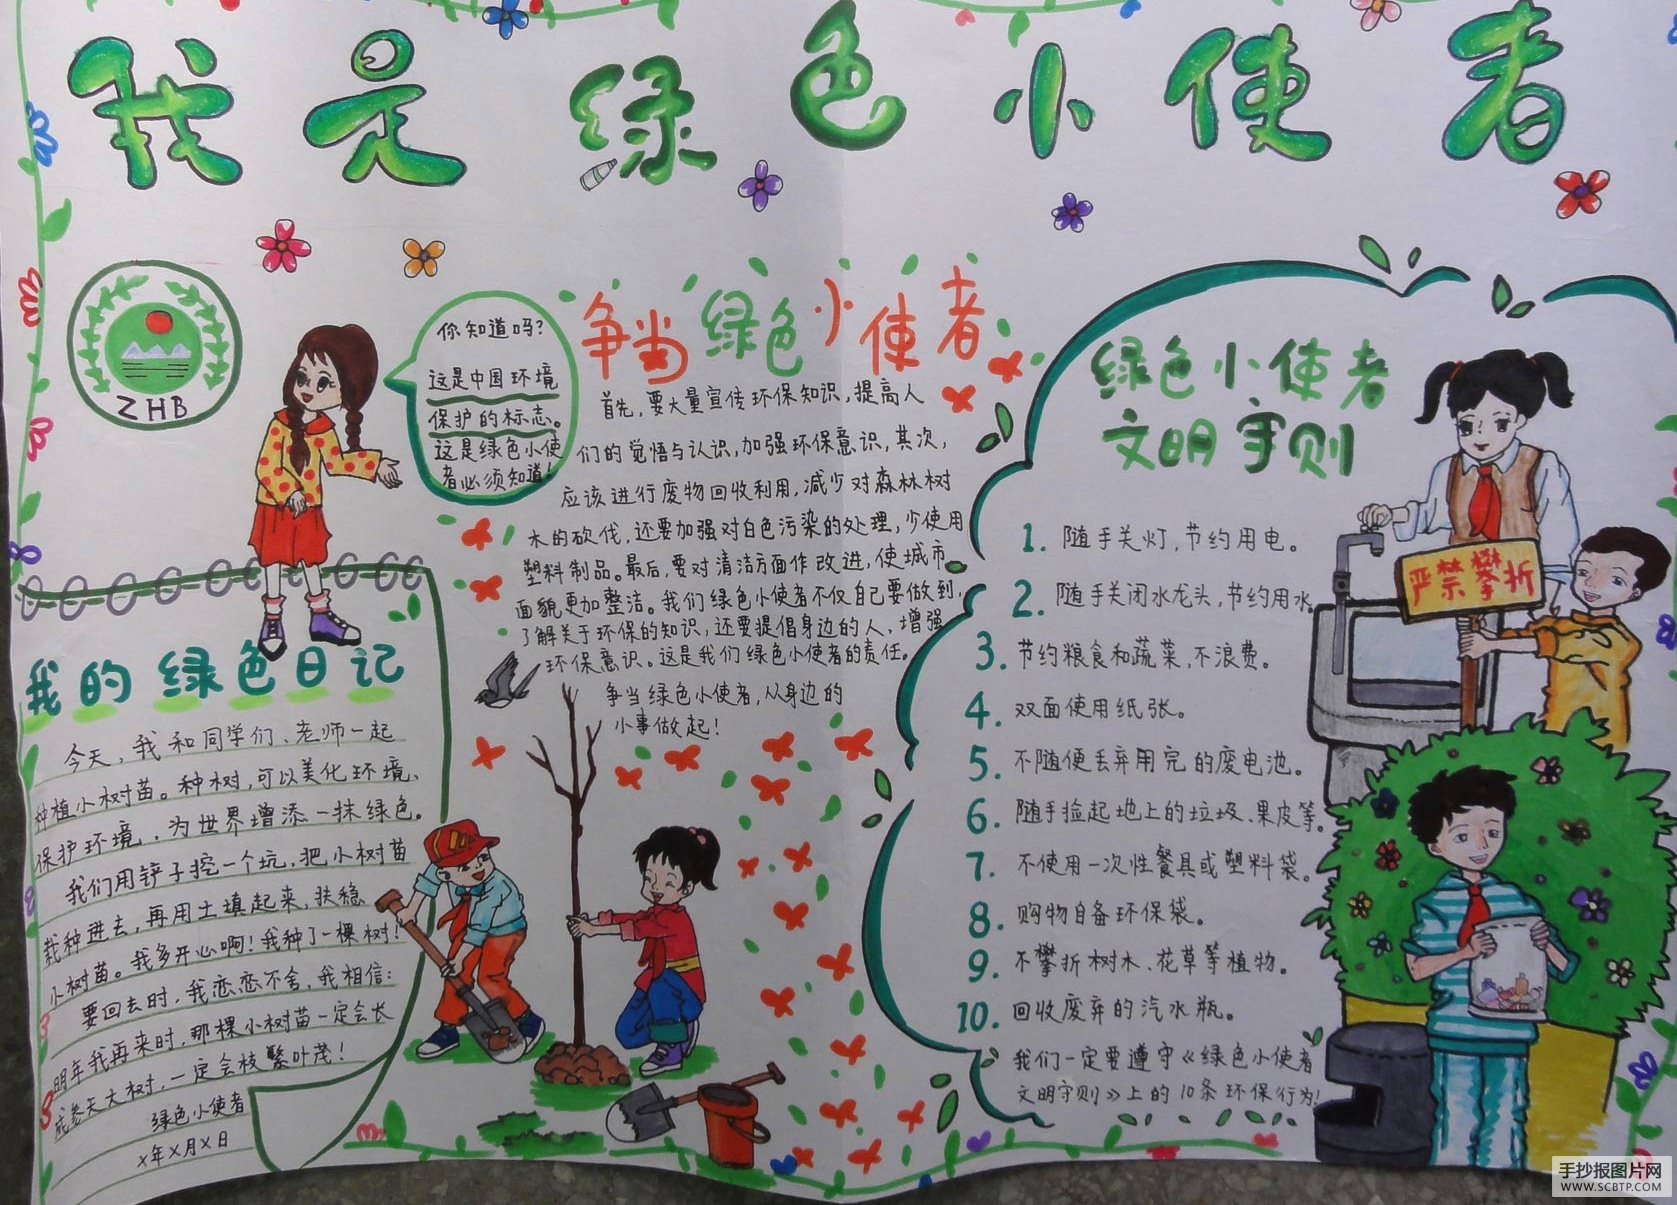 我是绿色小使者
ZHB
你知道吗?
这是中国环境
保护的标志。
这是绿色小使
者必须知道!
争当绿色小使者
首先,要大量宣传环保知识,提高人
们的觉悟与认识,加强环保意识,其次,
应该进行废物回收利用,减少对森林树
木的砍伐,还要加强对白色污染的处理,少使用
塑料制品。最后,要对清洁方面作改进,使城市
面貌更加整洁。我们绿色小使者不仅自己要做到,
了解关于环保的知识,还要提倡身边的人,增强
环保意识。这是我们绿色小使者的责任。
争当绿色小使者,从身边的
小事做起!
我的绿色日记
今天,我和同学们、老师一起
种植小树苗。种树,可以美化环境、
保护环境,为世界增添一抹绿色。
我们用铲子挖一个坑,把小树苗
栽种进去,再用土填起来,扶稳
小树苗。我多开心啊!我种了一棵树!
要回去时,我恋恋不舍,我相信:
明年我再来时,那棵小树苗一定会长
成参天大树,一定会枝繁叶茂!
绿色小使者
x年x月x日
绿色小使者
文明守则
1. 随手关灯,节约用电。
2. 随手关闭水龙头,节约用水。
3. 节约粮食和蔬菜,不浪费。
4. 双面使用纸张。
5. 不随便丢弃用完的废电池。
6. 随手捡起地上的垃圾、果皮等。
7. 不使用一次性餐具或塑料袋。
8. 购物自备环保袋。
9. 不攀折树木、花草等植物。
10. 回收废弃的汽水瓶。
我们一定要遵守《绿色小使者
文明守则》上的10条环保行为!
严禁攀折
手抄报图片网
WWW.SCBTP.COM